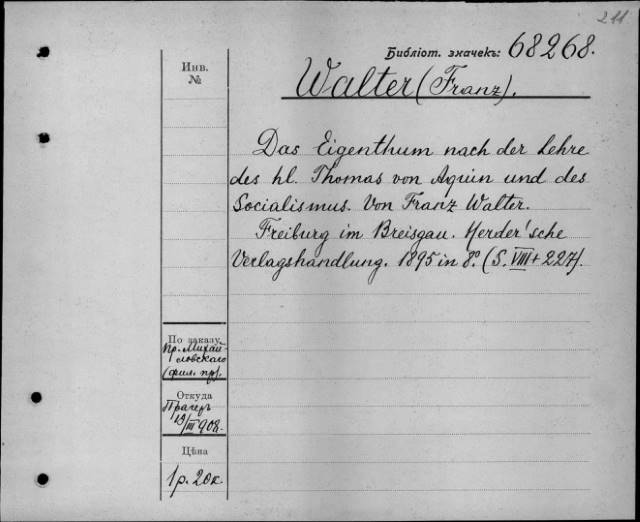 211.
Библіот. значекъ: 68268.
Инв.
№
Walter (Franz).
Das Eigenthum nach der Lehre
des hl. Thomas von Aquin und des
Socialismus. Von Franz Walter.
Freiburg im Breisgau. Herder'sche
Verlagshandlung. 1895 in 8º. (S. VIII + 227).
По заказу
пр. Михай-
ловскаго
(фил. пр).
Откуда
Прагеръ
19/III 908.
Цѣна
1 р. 20 к